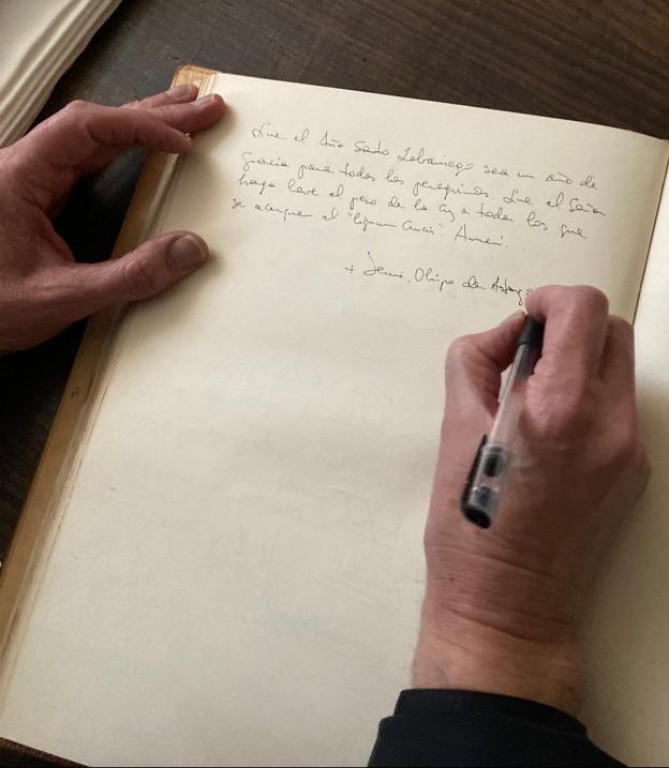 Que el Año Santo Lebaniego sea un año de
gracia para todos los peregrinos. Que el Señor
haga leve el peso de la cruz a todos los que
se acerquen al "lignum crucis". Amén.
+ Jesús, Obispo de Astorga